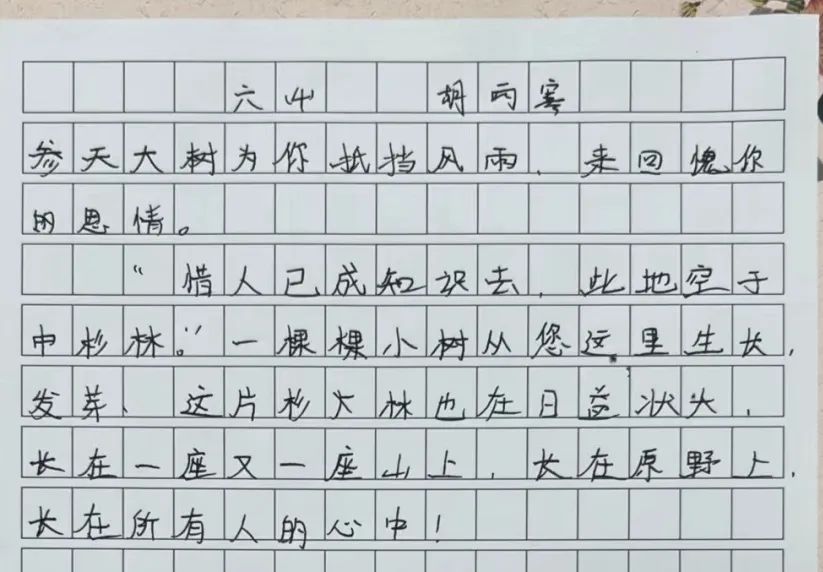 六(4) 胡雨寒
参天大树为你抵挡风雨，来回愧你
的恩情。
“惜人已成知识去，此地空于
中杉林。”一棵棵小树从您这里生长，
发芽、这片杉大林也在日益状大，
长在一座又一座山上，长在原野上，
长在所有人的心中！